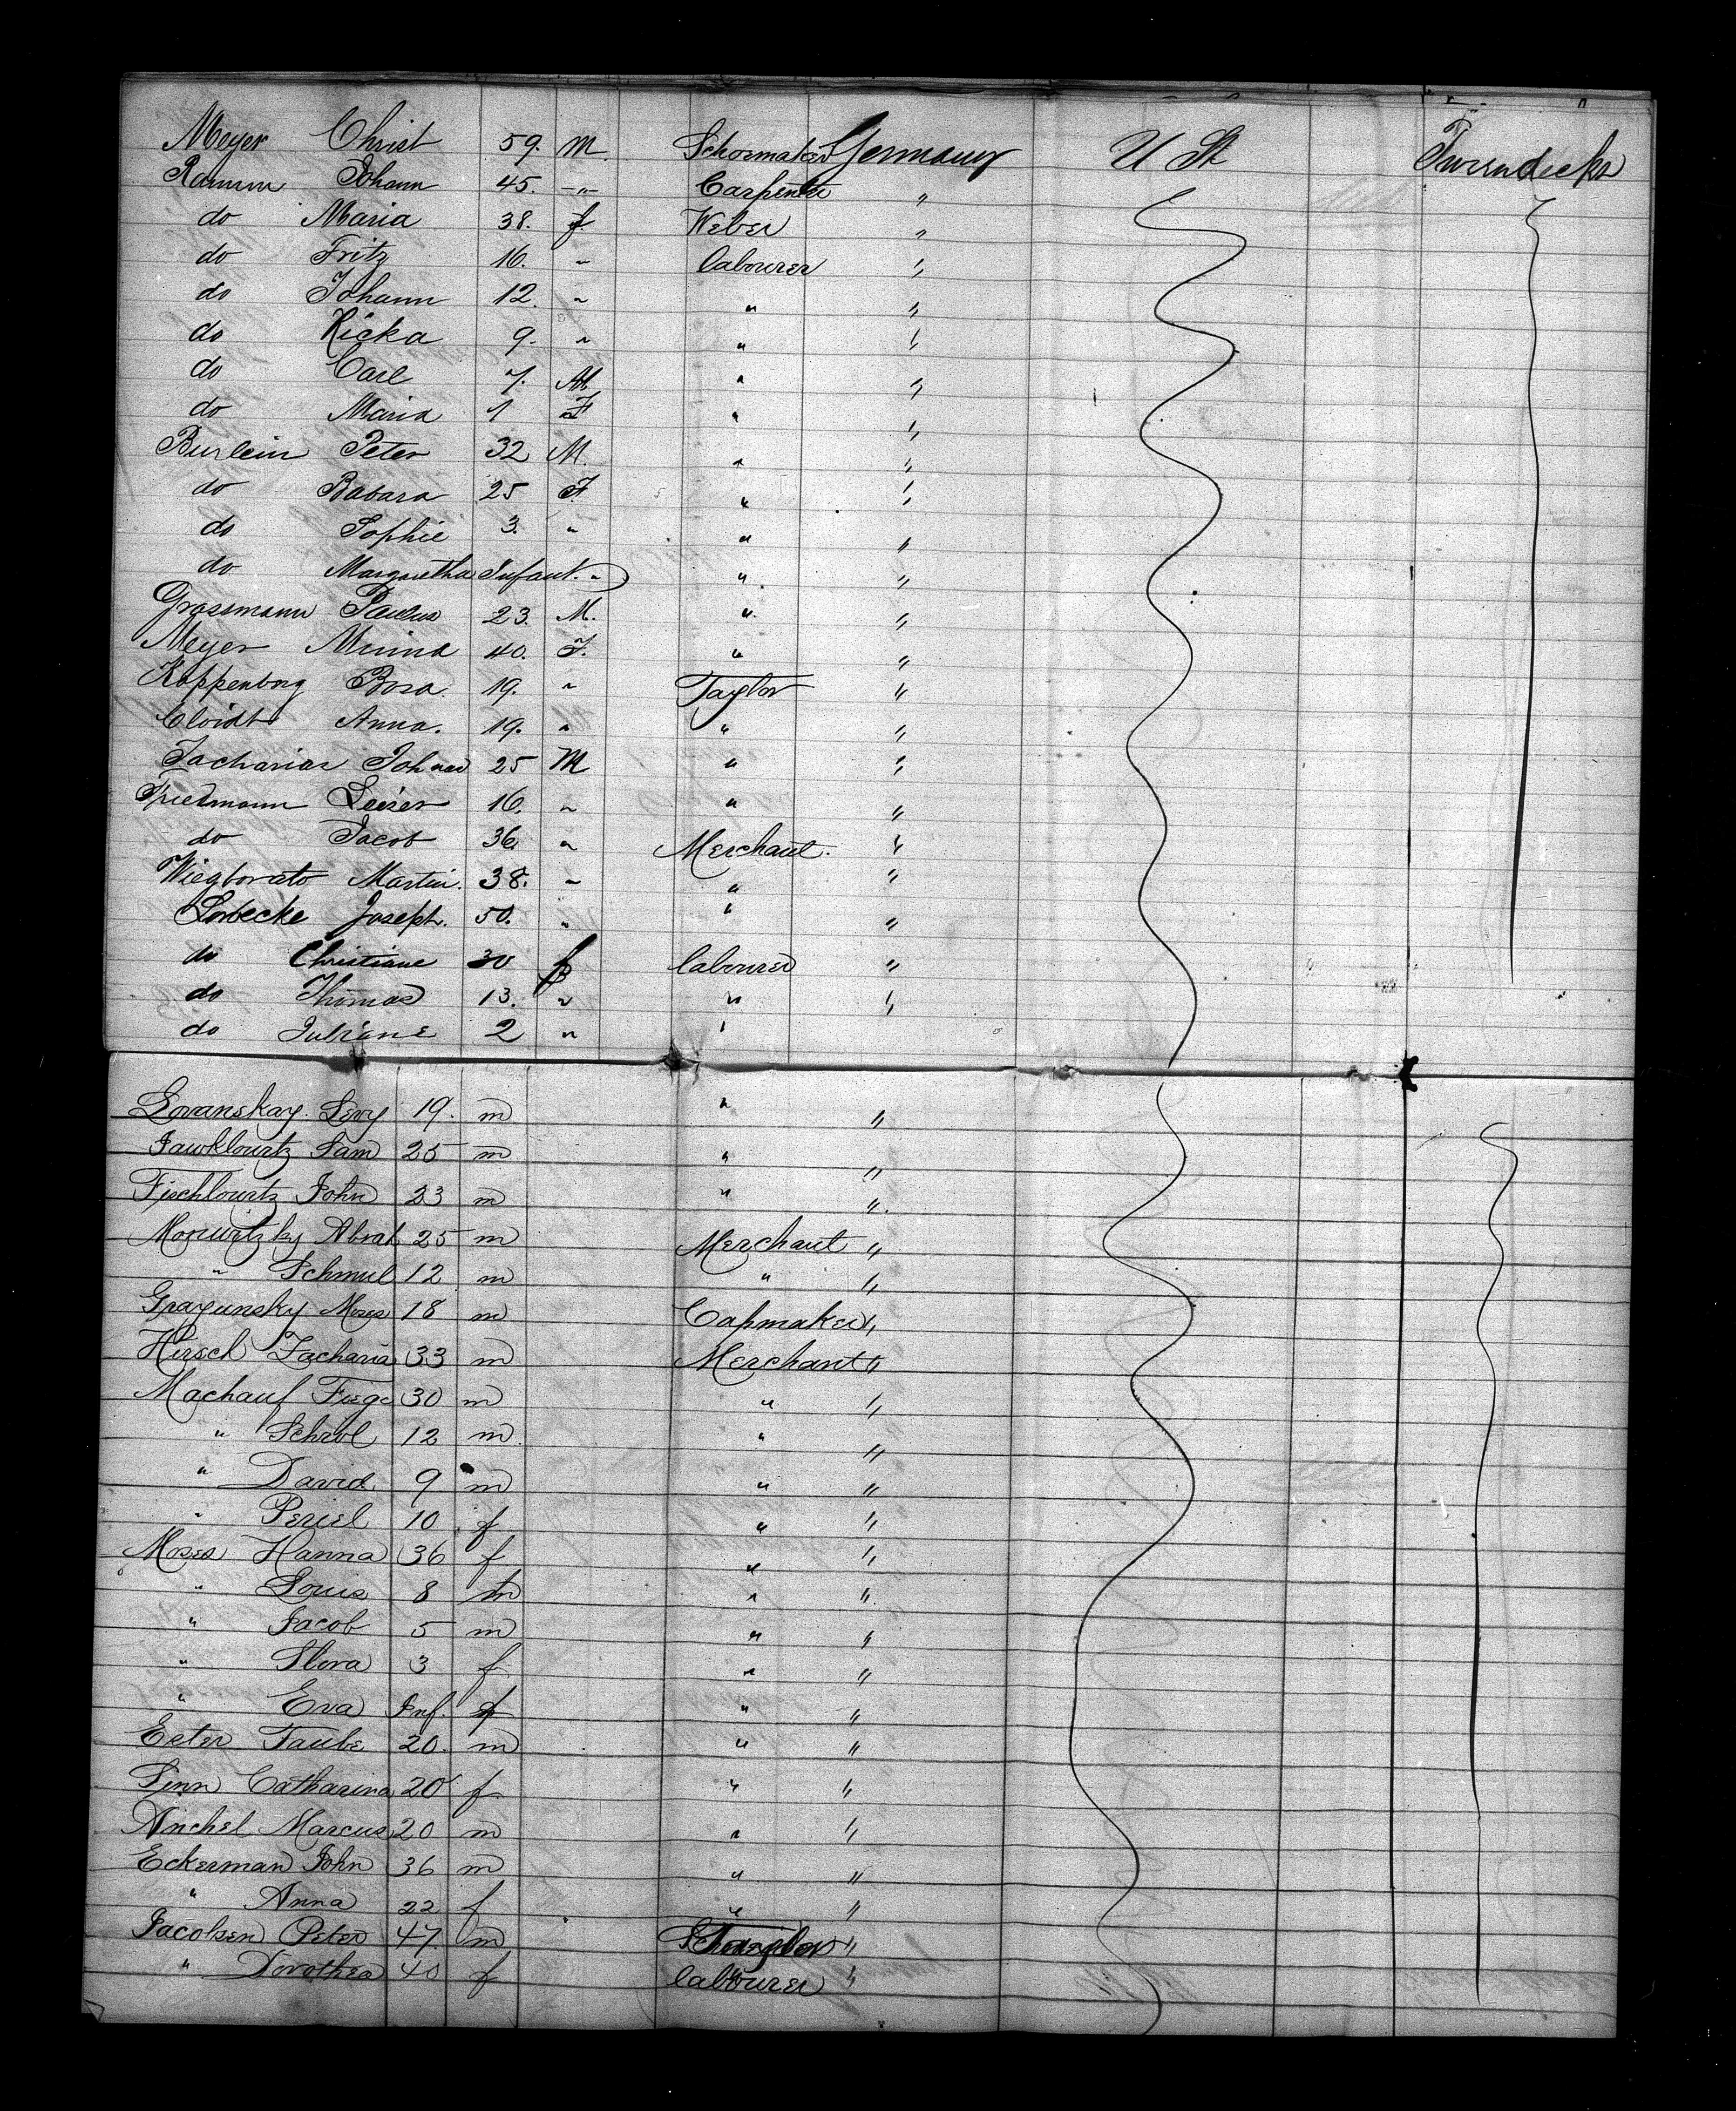 Meyer Christ 59. M. Schoemaker Germany U St Twerndecks
Ramm Johann 45. -"- Carpenter "
do Maria 38. f Weber "
do Fritz 16. " labourer "
do Johann 12. " " "
do Ricka 9. " " "
do Carl 7. M " "
do Maria 1 F " "
Burlein Peter 32 M. " "
do Babara 25 F " "
do Sophie 3. " " "
do Margaretha Infant. " " "
Grassmann Paulus 23. M. " "
Meyer Minna 40. F. " "
Koppenborg Rosa. 19. " Taylor "
Cloidt Anna. 19. " " "
Zacharias Johann 25 M " "
Friedmann Leiser 16. " " "
do Jacob 36 " Merchant. "
Martin. 38. " " "
Lobecke Joseph. 50. " " "
do Christiane 30 f labourer "
do Thomas 13. " " "
do Juliane 2 " "
Lovanskay. Levy 19. m " "
Sam 25 m " "
John 23 m " "
Abrah 25 m Merchant "
" Schmul 12 m " "
Grayunsky Moses 18 m Capmaker "
Hirsch Zacharia 33 m Merchant "
Machauf 30 m " "
" Schrol 12 m. " "
" David. 9 m " "
" Periel 10 f " "
Moses Hanna 36 f " "
" Louis 8 m " "
" Jacob 5 m " "
" Flora 3 f " "
" Eva Inf. f " "
Ester Taube 20. m " "
Finn Catharina 20 f " "
Anchel Marcus 20 m " "
Eckerman John 36 m " "
" Anna 22 f " "
Jacobsen Peter 47. m Taylor "
" Dorothea 40 f labourer "